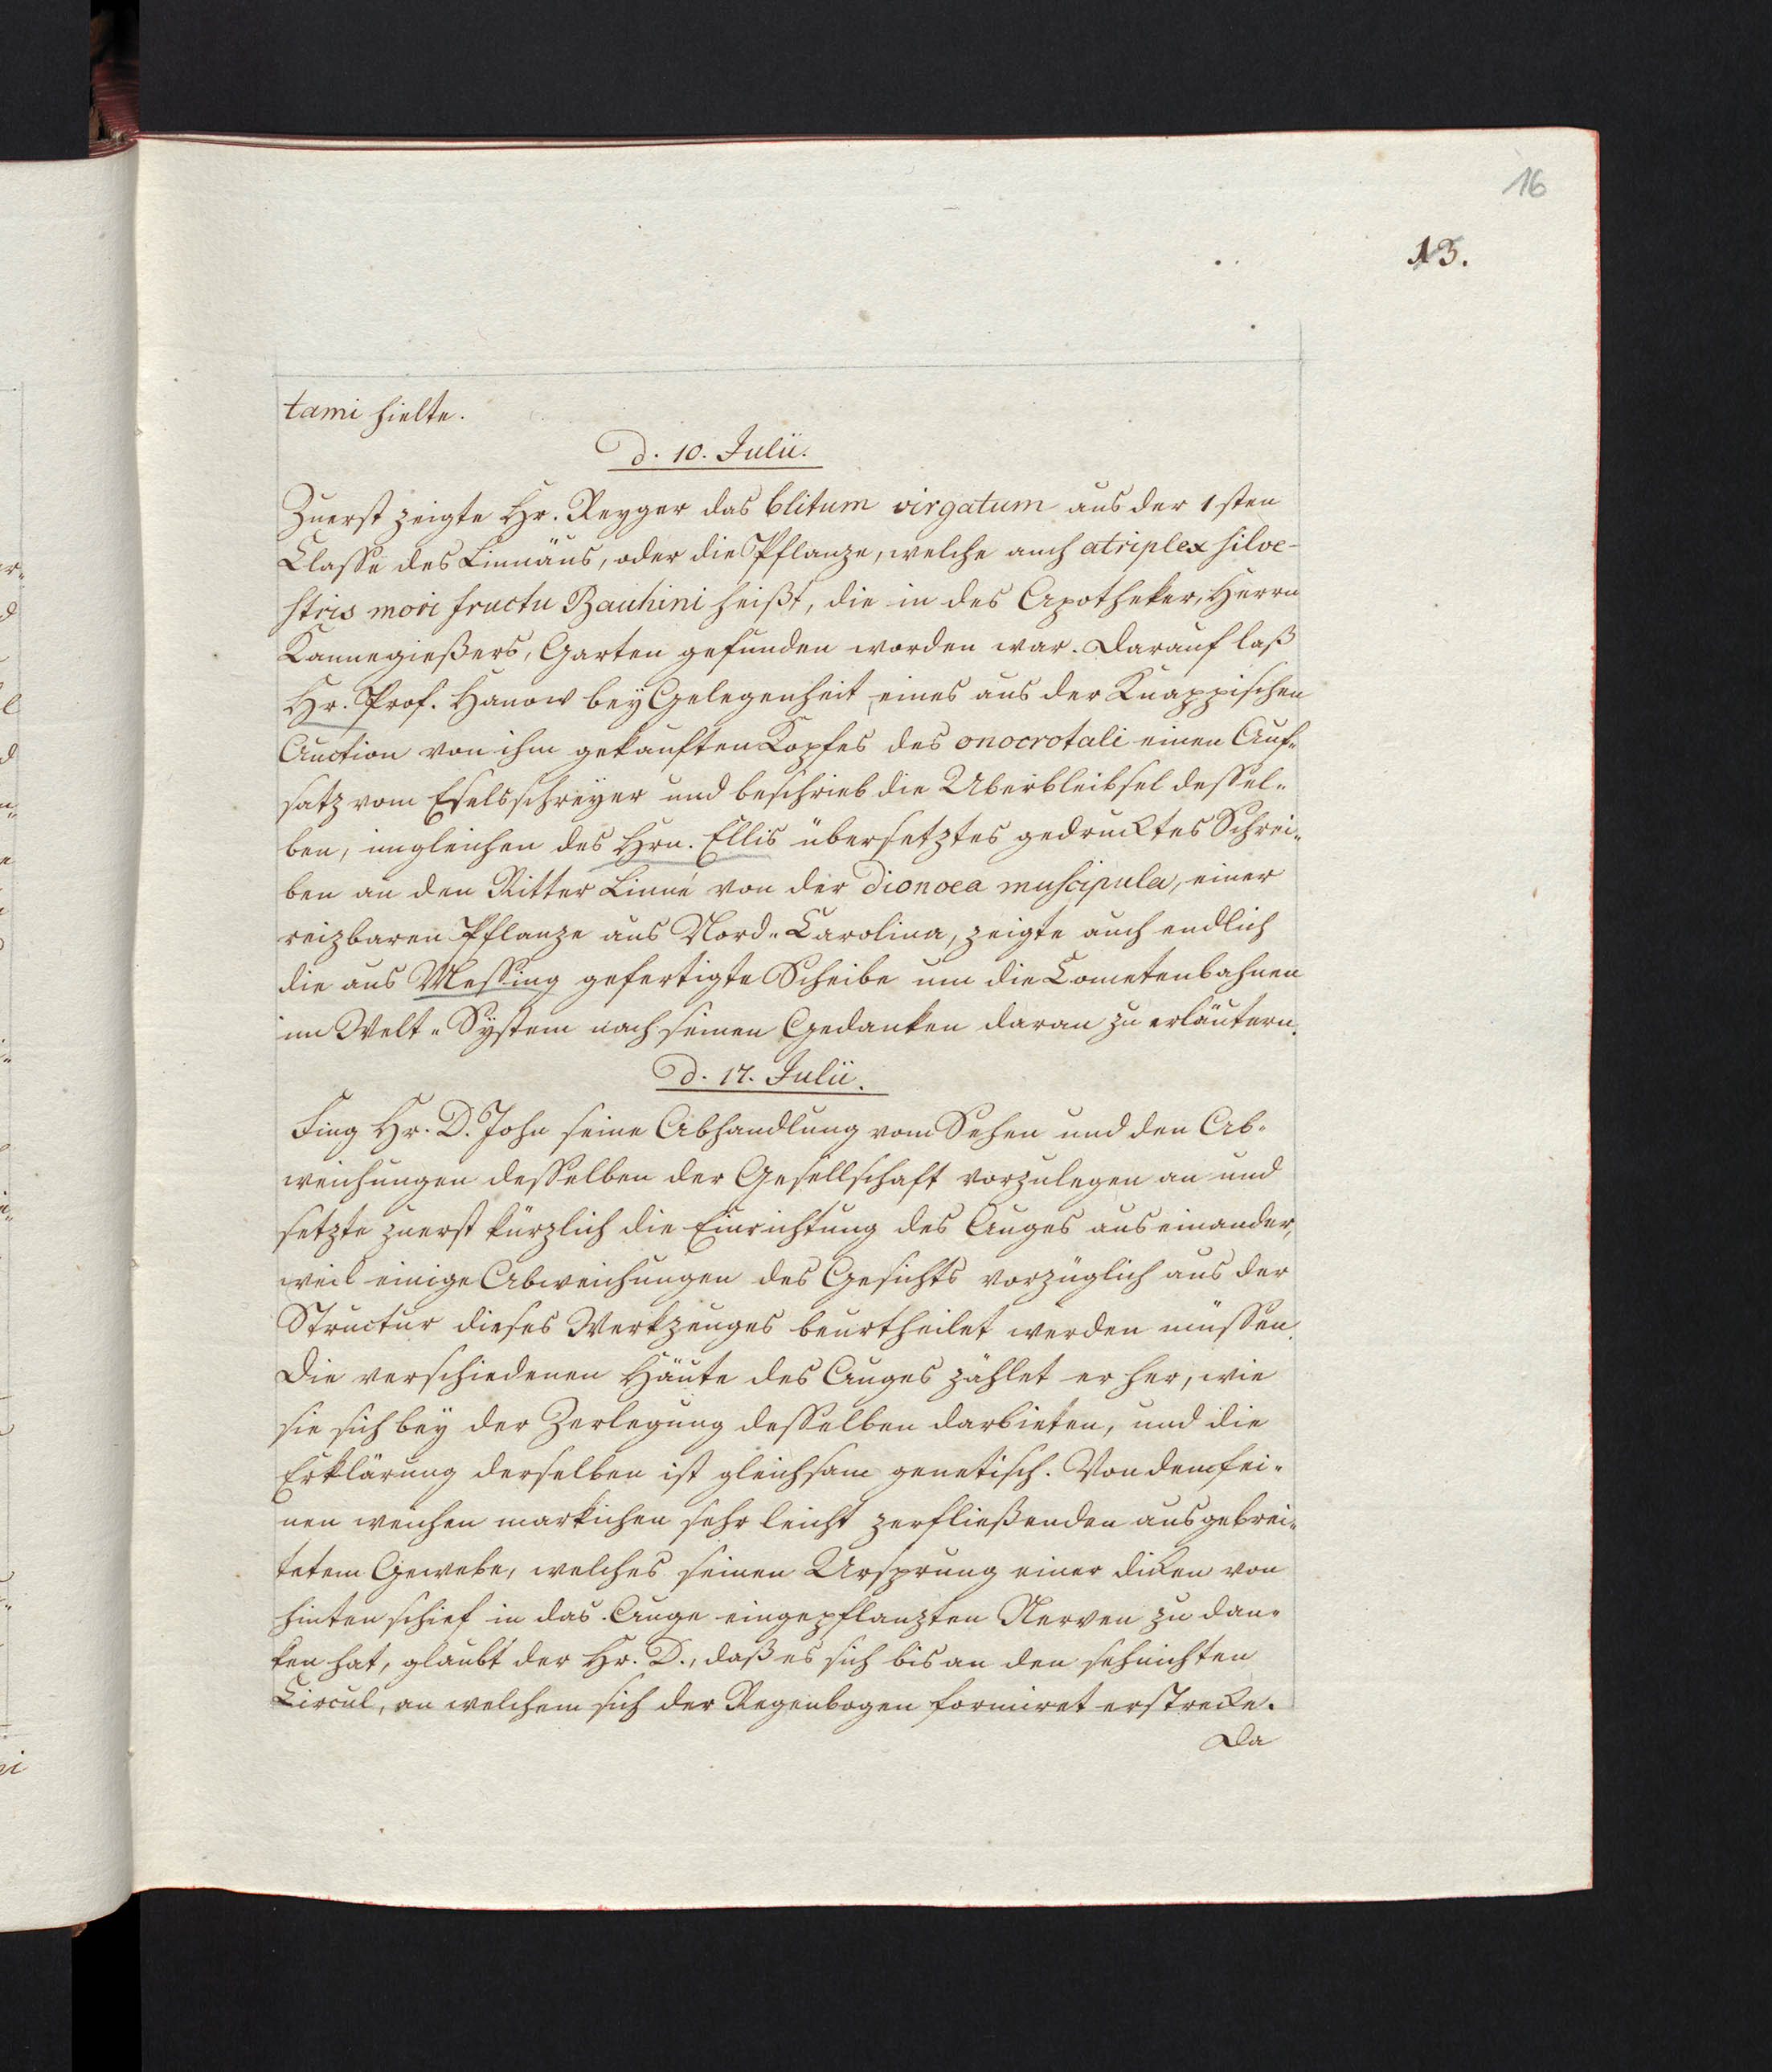 16
13.
tami hielte.
d. 10. Julii.
Zuerst zeigte Hr. Reyger das blitum virgatum aus der 1sten
Classe des Linnäus, oder die Pflanze, welche auch atriplex silve-
stris mori fructu Bauhini heißt, die in des Apotheker, Herrn
Kannegießers, Garten gefunden worden war. Darauf laß
Hr. Prof. Hanow bey Gelegenheit eines aus der Knappischen
Auction von ihm gekauften Kopfes des onocrotali einen Auf-
satz vom Eselsschreyer und beschrieb die Uberbleibsel dessel-
ben, imgleichen des Hrn. Ellis übersetztes gedrucktes Schrei-
ben an den Ritter Linné von der dionoea muscipula, einer
reizbaren Pflanze aus Nord-Carolina, zeigte auch endlich
die aus Messing gefertigte Scheibe um die Cometenbahnen
im Welt-System nach seinen Gedanken daran zu erläutern.
d. 17. Julii.
Fing Hr. D. John seine Abhandlung vom Sehen und den Ab-
weichungen desselben der Gesellschaft vorzulegen an und
setzte zuerst kürzlich die Einrichtung des Auges aus einander,
weil einige Abweichungen des Gesichts vorzüglich aus der
Structur dieses Werkzeuges beurtheilet werden müssen.
Die verschiedenen Häute des Auges zählet er her, wie
sie sich bey der Zerlegung desselben darbieten, und die
Erklärung derselben ist gleichsam genetisch. Von dem fei-
nen weichen markichen sehr leicht zerfließenden ausgebrei-
tetem Gewebe, welches seinen Ursprung einer dicken von
hinten schief in das Auge eingepflanzten Nerven zu dan-
ken hat, glaubt der Hr. D., daß es sich bis an den sehnichten
Circul, an welchem sich der Regenbogen formiret erstrecke.
Da